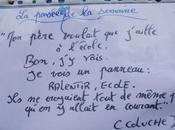 La pensée de la semaine
"Mon père voulait que j'aille
à l'école.
Bon, j'y vais.
Je vois un panneau:
RALENTIR, ECOLE.
Ils ne croyaient tout de même pas
qu'on y allait en courant..."
COLUCHE